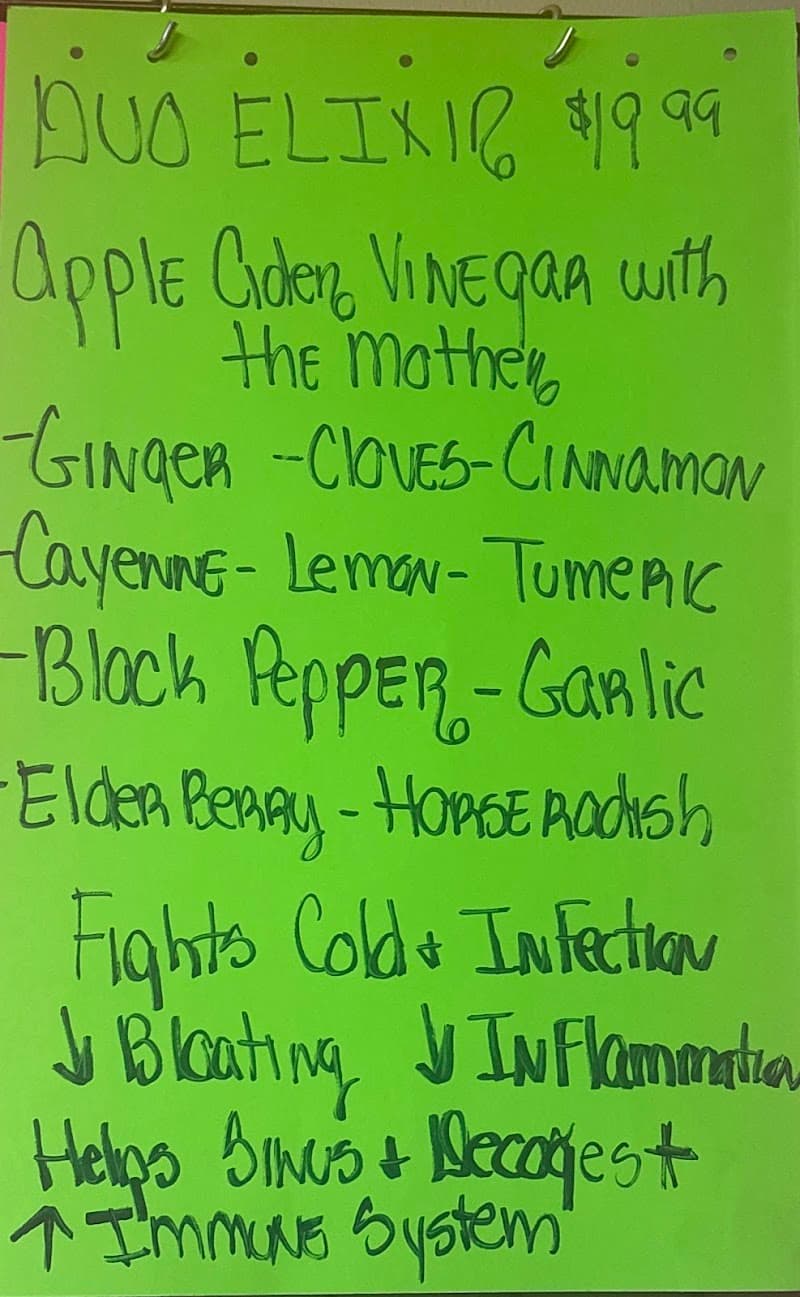 DUO ELIXIR $19.99
Apple Cider Vinegar with
the mother
-Ginger -Cloves- Cinnamon
-Cayenne- Lemon- Tumeric
-Black Pepper - Garlic
-Elder Berry - Horseradish
Fights Cold + Infection
↓ Bloating ↓ Inflammation
Helps Sinus + Decogest
↑ Immune System